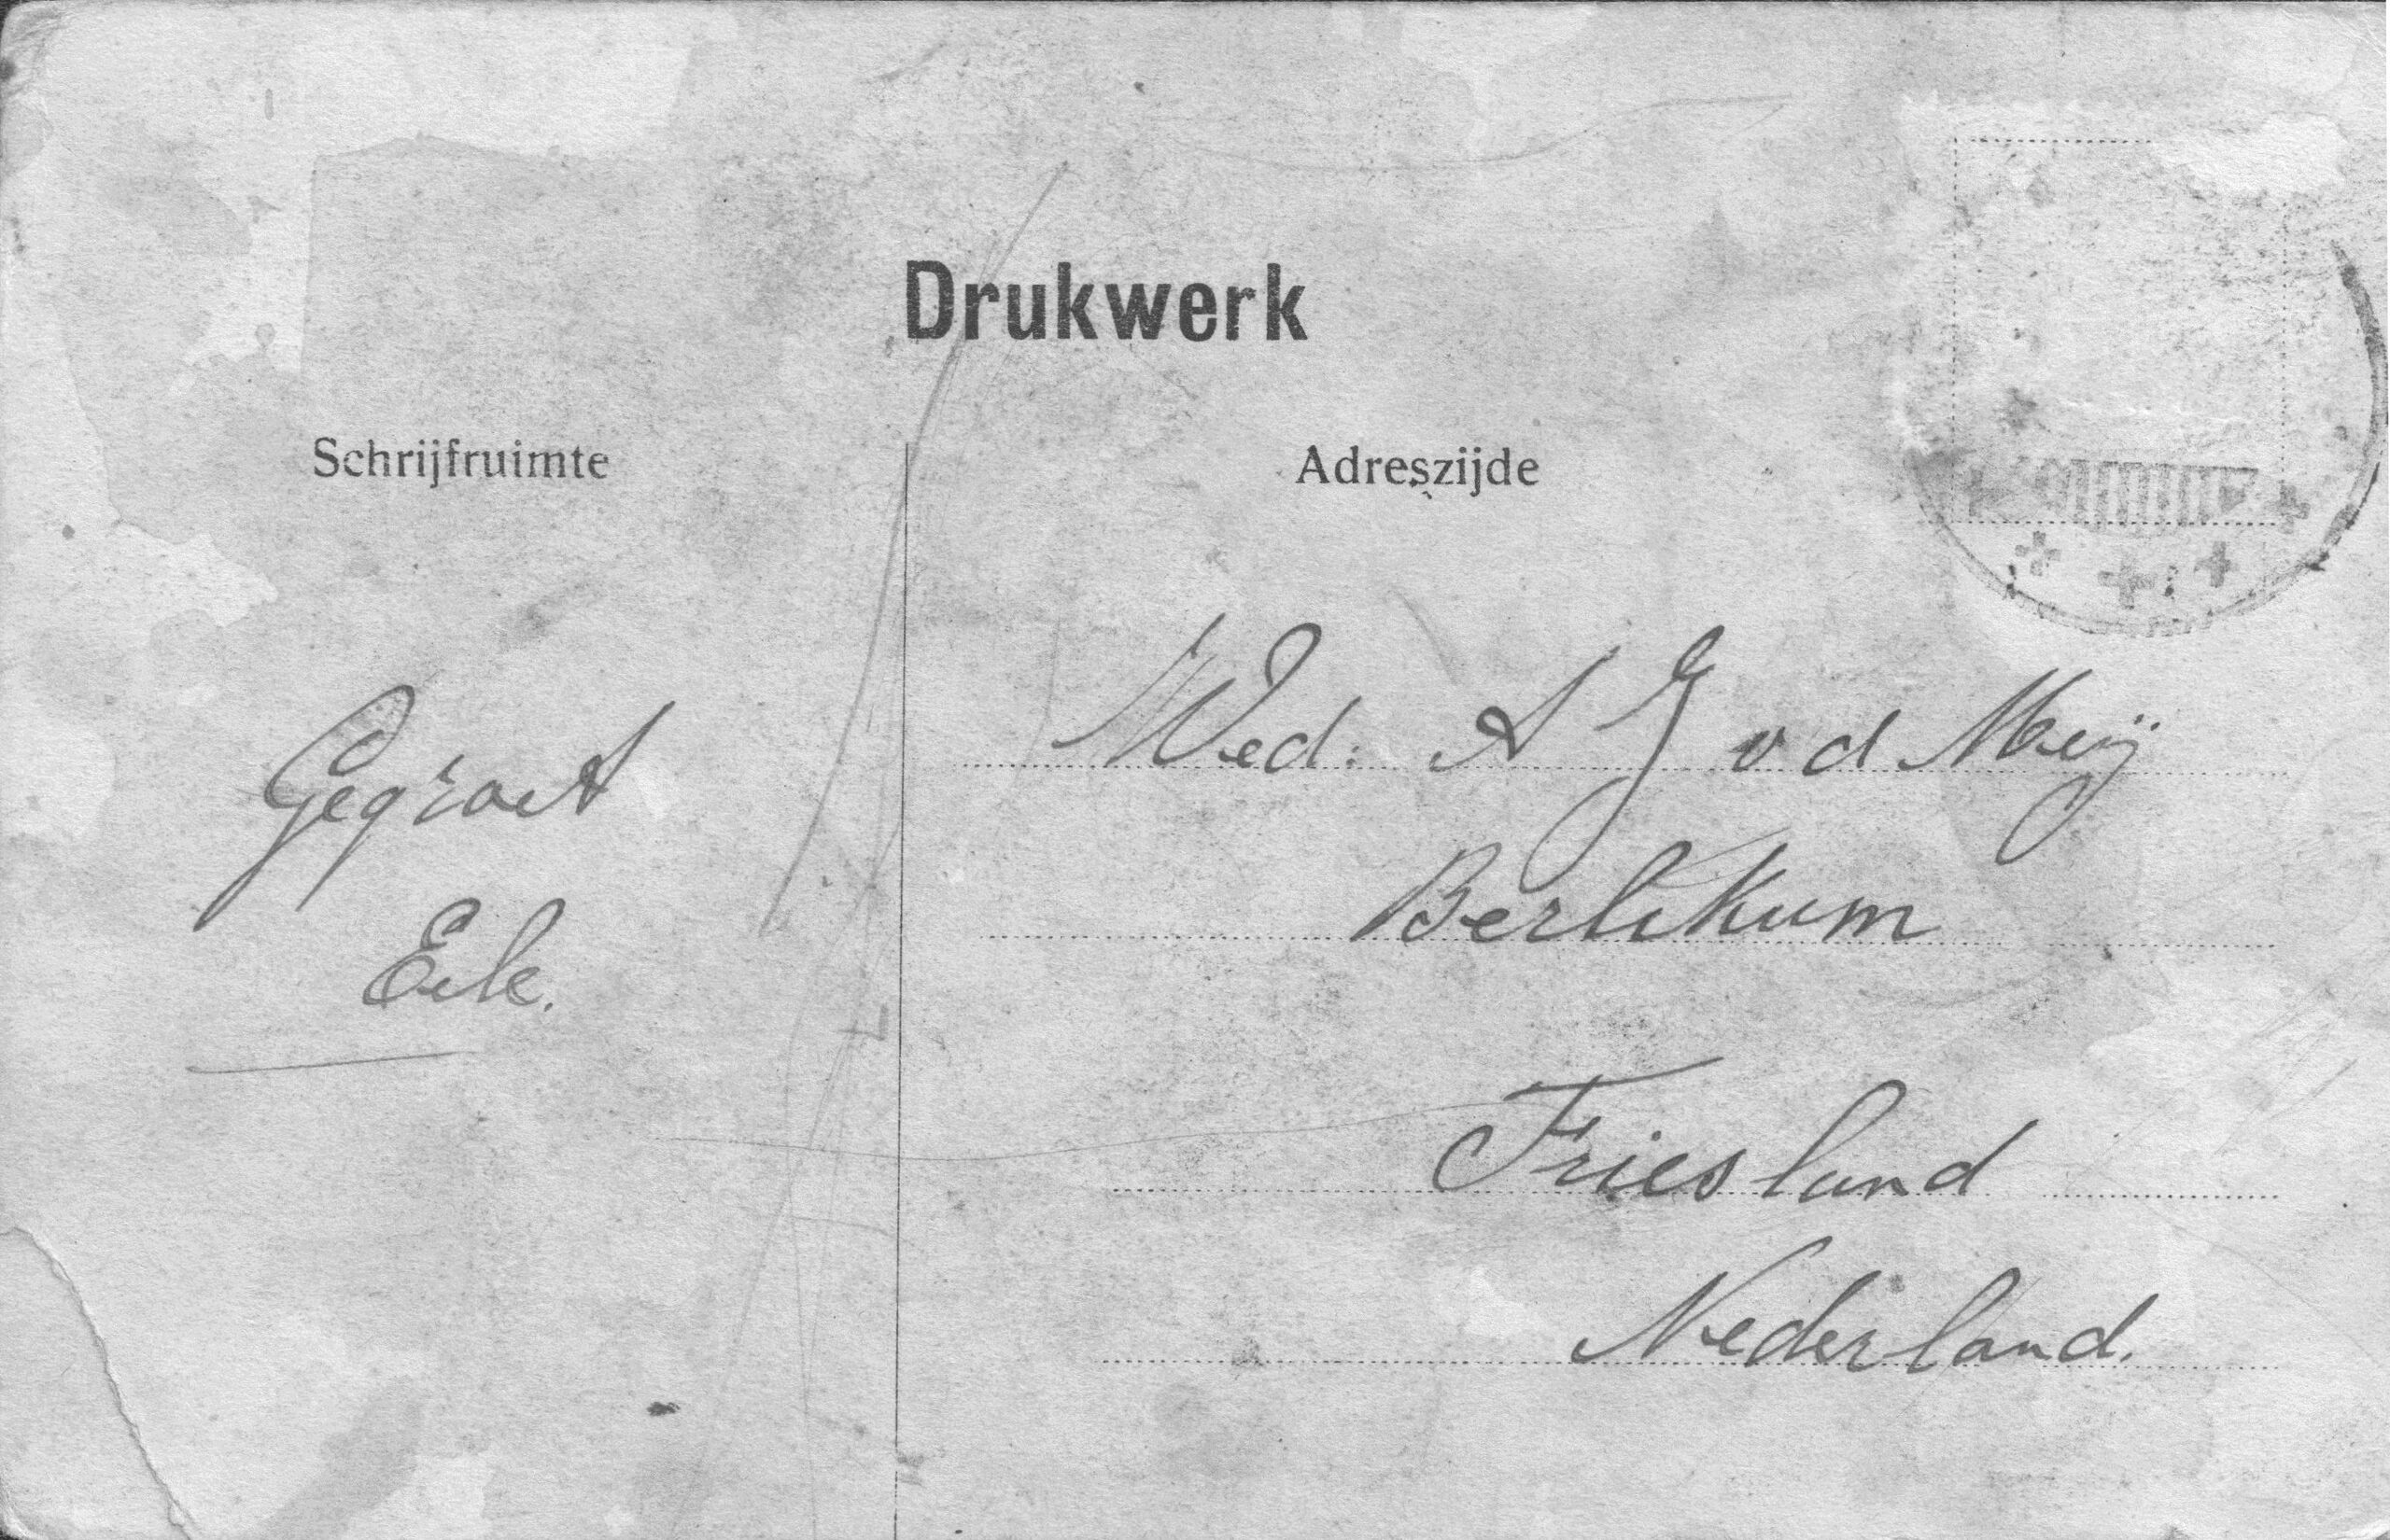 Drukwerk
Schrijfruimte
Adreszijde
Gegroet
Eelk.
Wed: A J v d Meij
Berlikum
Friesland
Nederland.